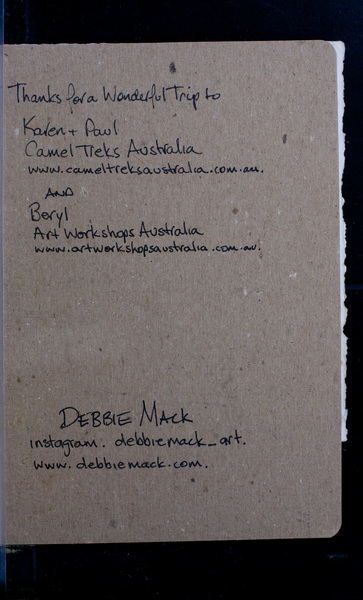 Thanks for a Wonderful Trip to
Karen + Paul
Camel Treks Australia
www.cameltreksaustralia.com.au.
AND
Beryl
Art Workshops Australia
www.artworkshopsaustralia.com.au.
DEBBIE MACK
instagram. debbiemack_art.
www. debbiemack.com.